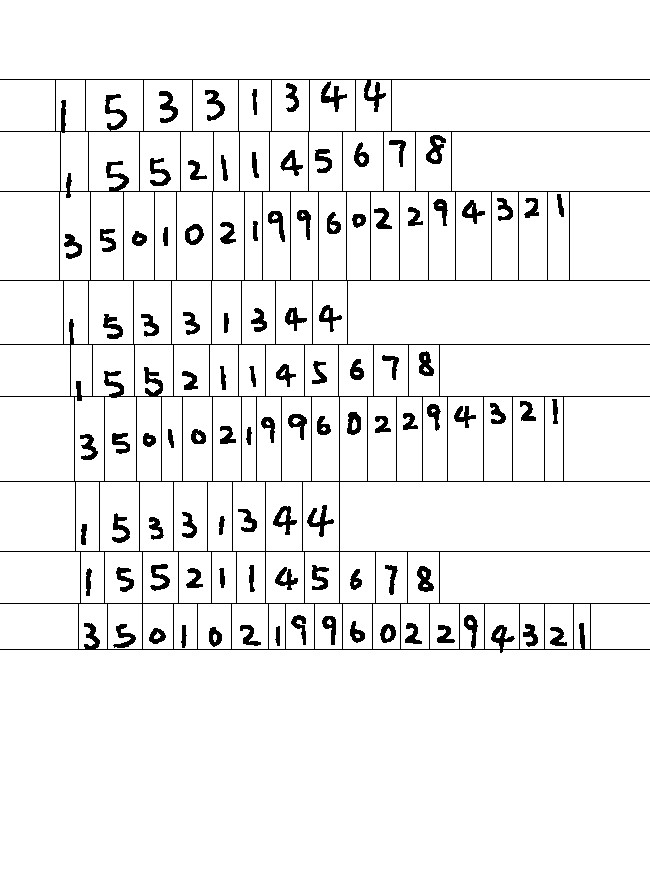 15331344
15521145678
350102199602294321
15331344
15521145678
350102199602294321
15331344
15521145678
350102199602294321